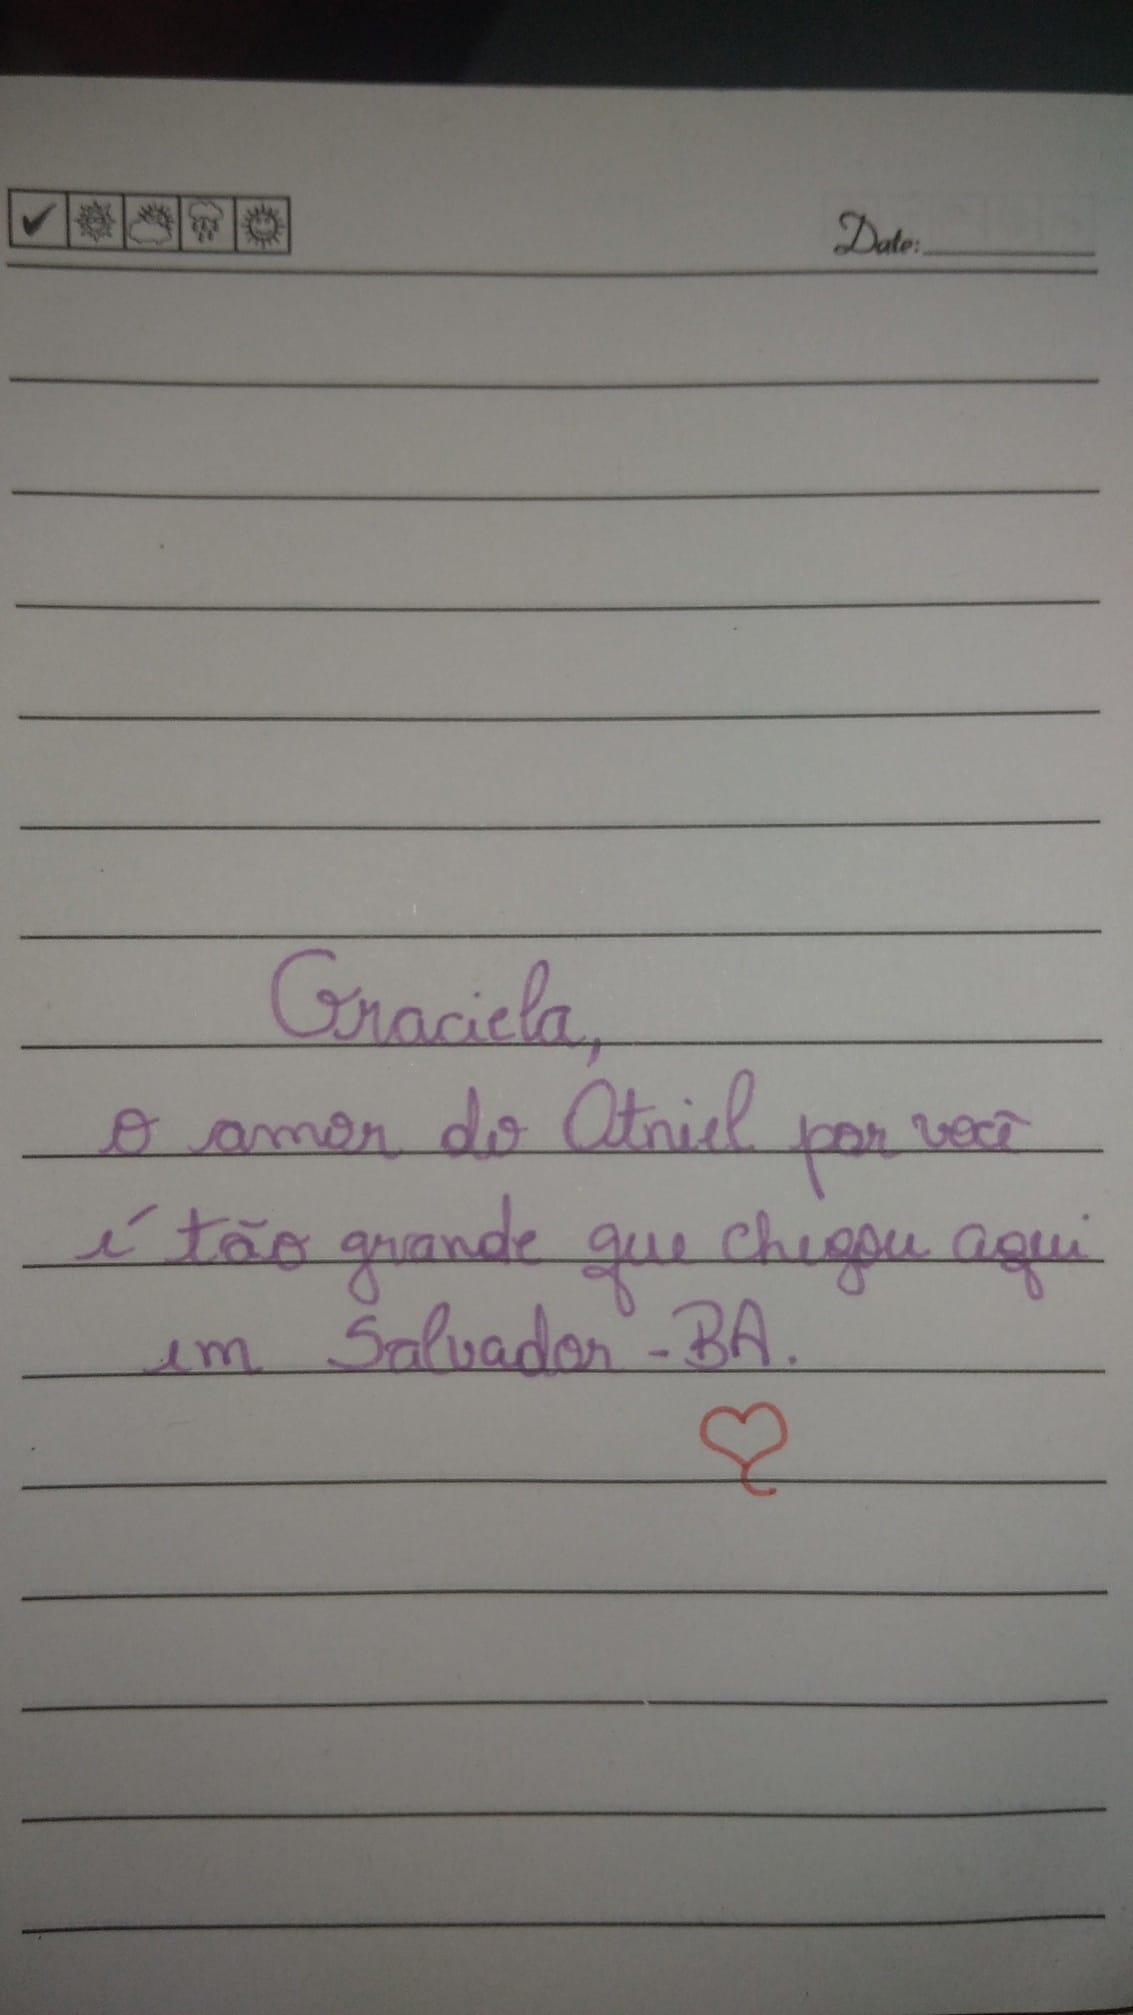 Date:
Graciela,
o amor do Otniel por você
é tão grande que chegou aqui
em Salvador - BA.